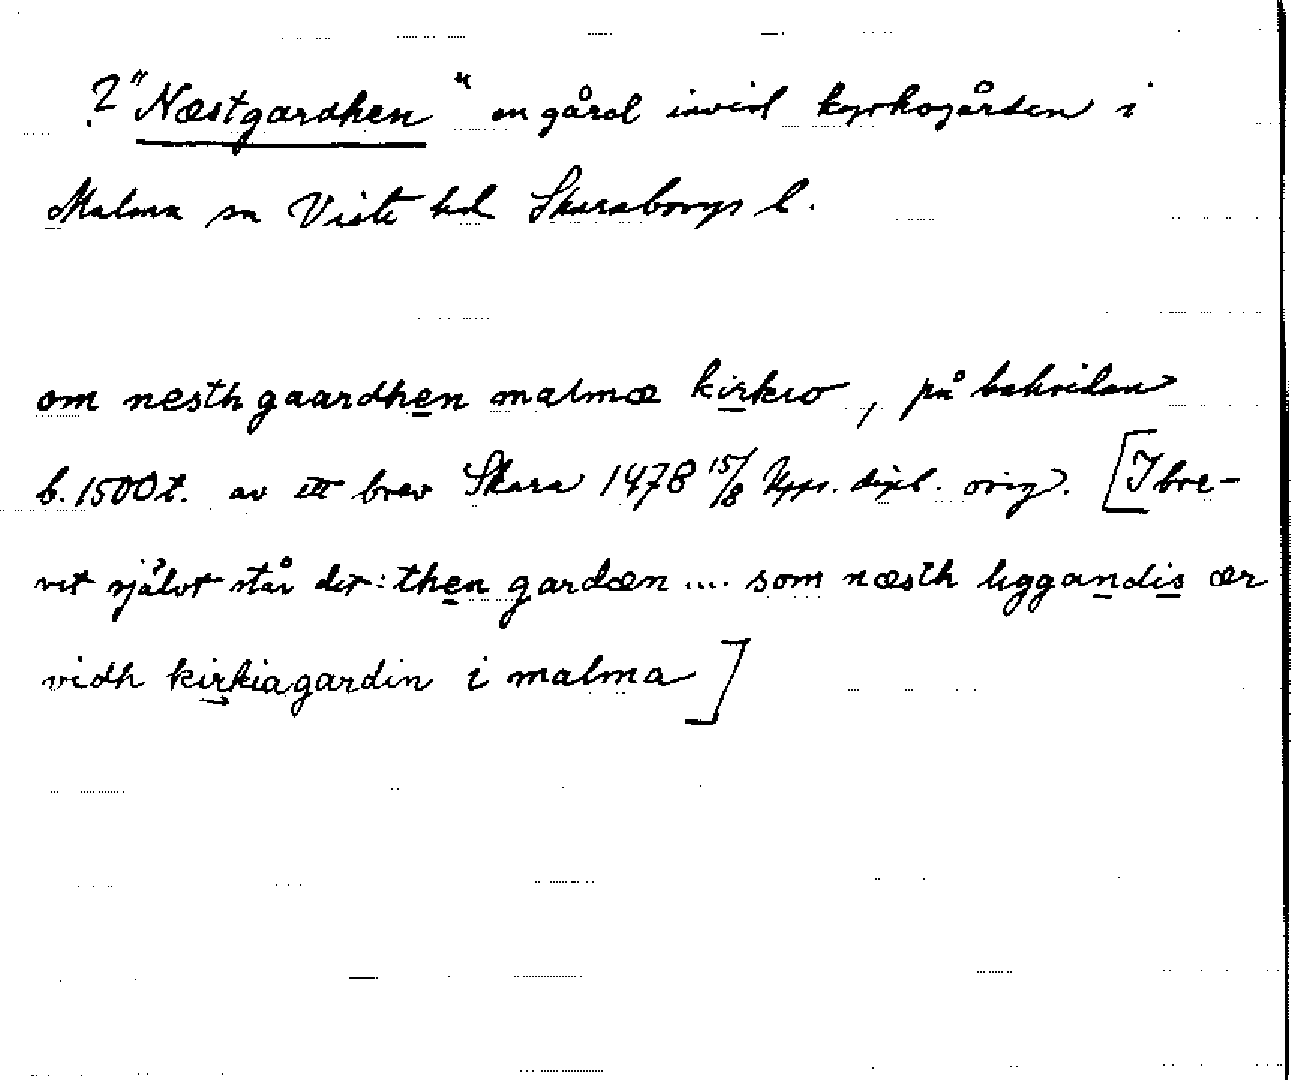 ? "Næstgardhen" en gård invid kyrkogården i
Malma sn Viste hd Skaraborgs l.
om nesthgaardhen malmæ kirkio, på baksidan
b. 1500t. av ett brev Skara 1478 15/8 Upps. dipl. orig. [I bre-
vet självt står det: then gardæn .... som næsth liggandis ær
vidh kirkiagardin i malma]